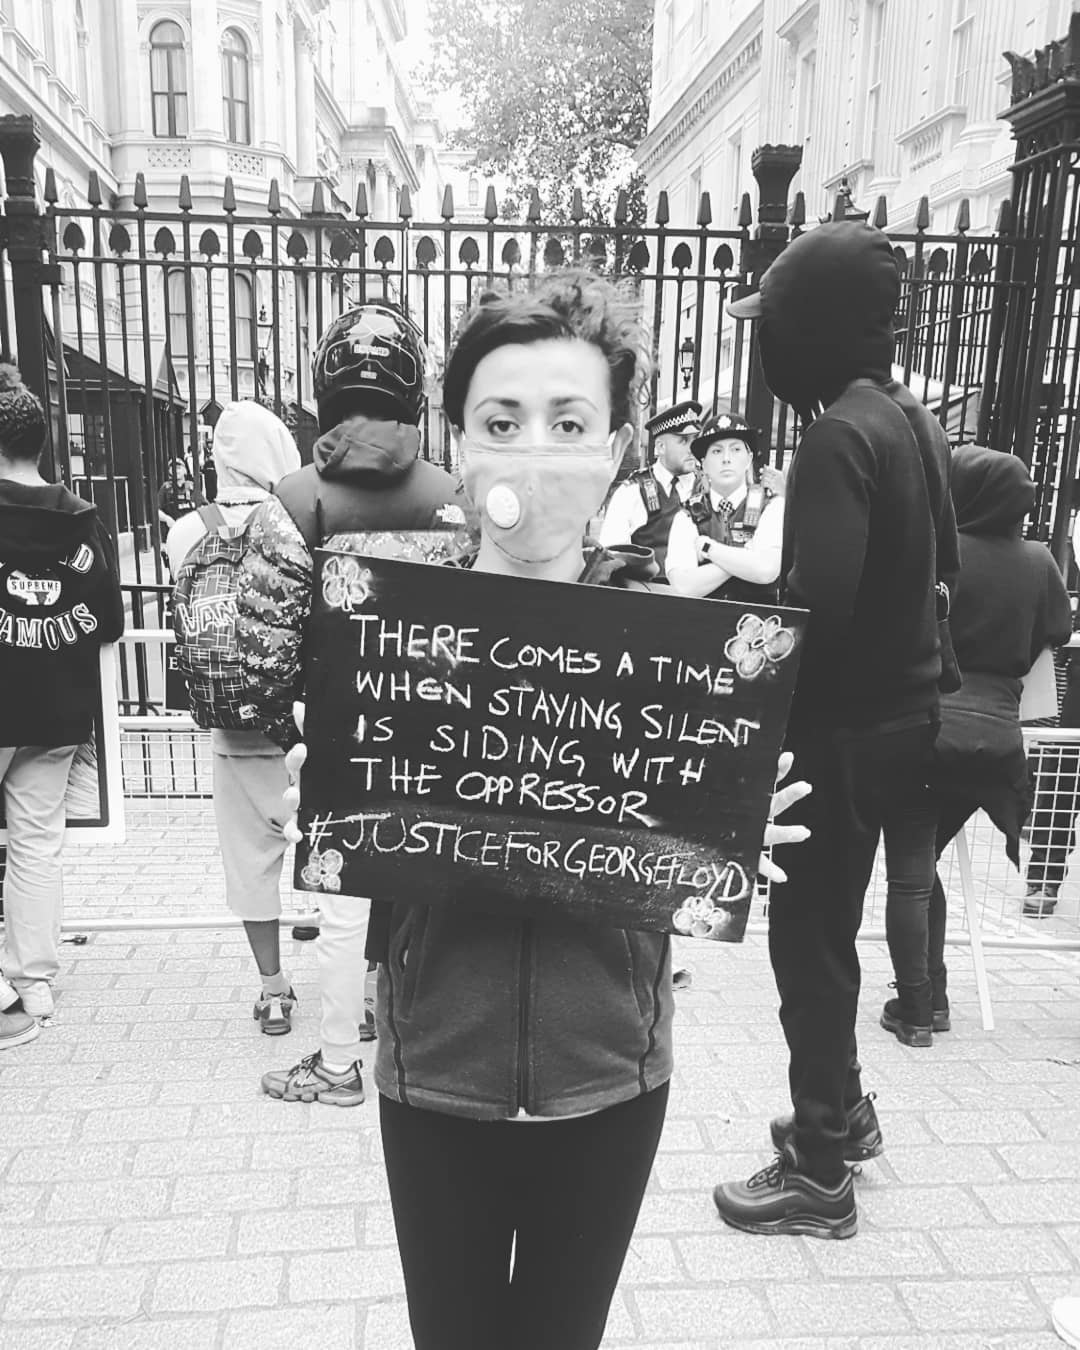 THERE COMES A TIME
WHEN STAYING SILENT
IS SIDING WITH
THE OPPRESSOR
#JUSTICEFORGEORGEFLOYD
SUPREME
VANS